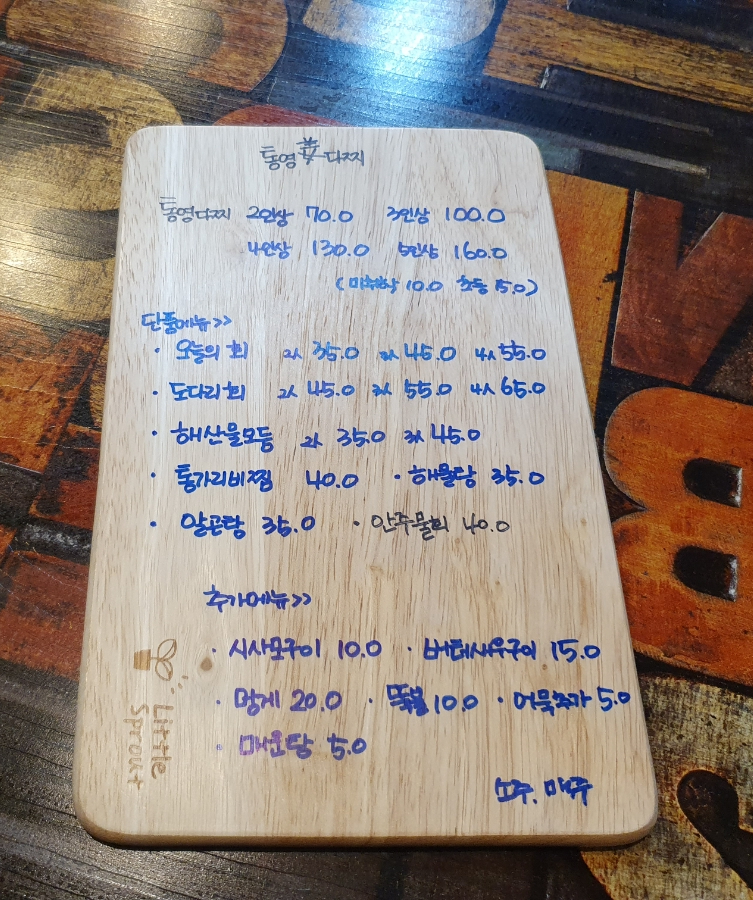 통영 다찌
통영다찌 2인상 70.0 3인상 100.0
4인상 130.0 5인상 160.0
(미취학 10.0 초등 15.0)
단품메뉴>>
· 오늘의 회 2人 35.0 3人 45.0 4人 55.0
· 도다리회 2人 45.0 3人 55.0 4人 65.0
· 해산물모듬 2人 35.0 3人 45.0
· 통가리비찜 40.0 · 해물탕 35.0
· 알곤탕 35.0 · 안주물회 40.0
추가메뉴>>
· 시사모구이 10.0 · 버터새우구이 15.0
· 멍게 20.0 · 10.0 · 어묵추가 5.0
· 매운탕 5.0
소주, 맥주
Little
Sprout